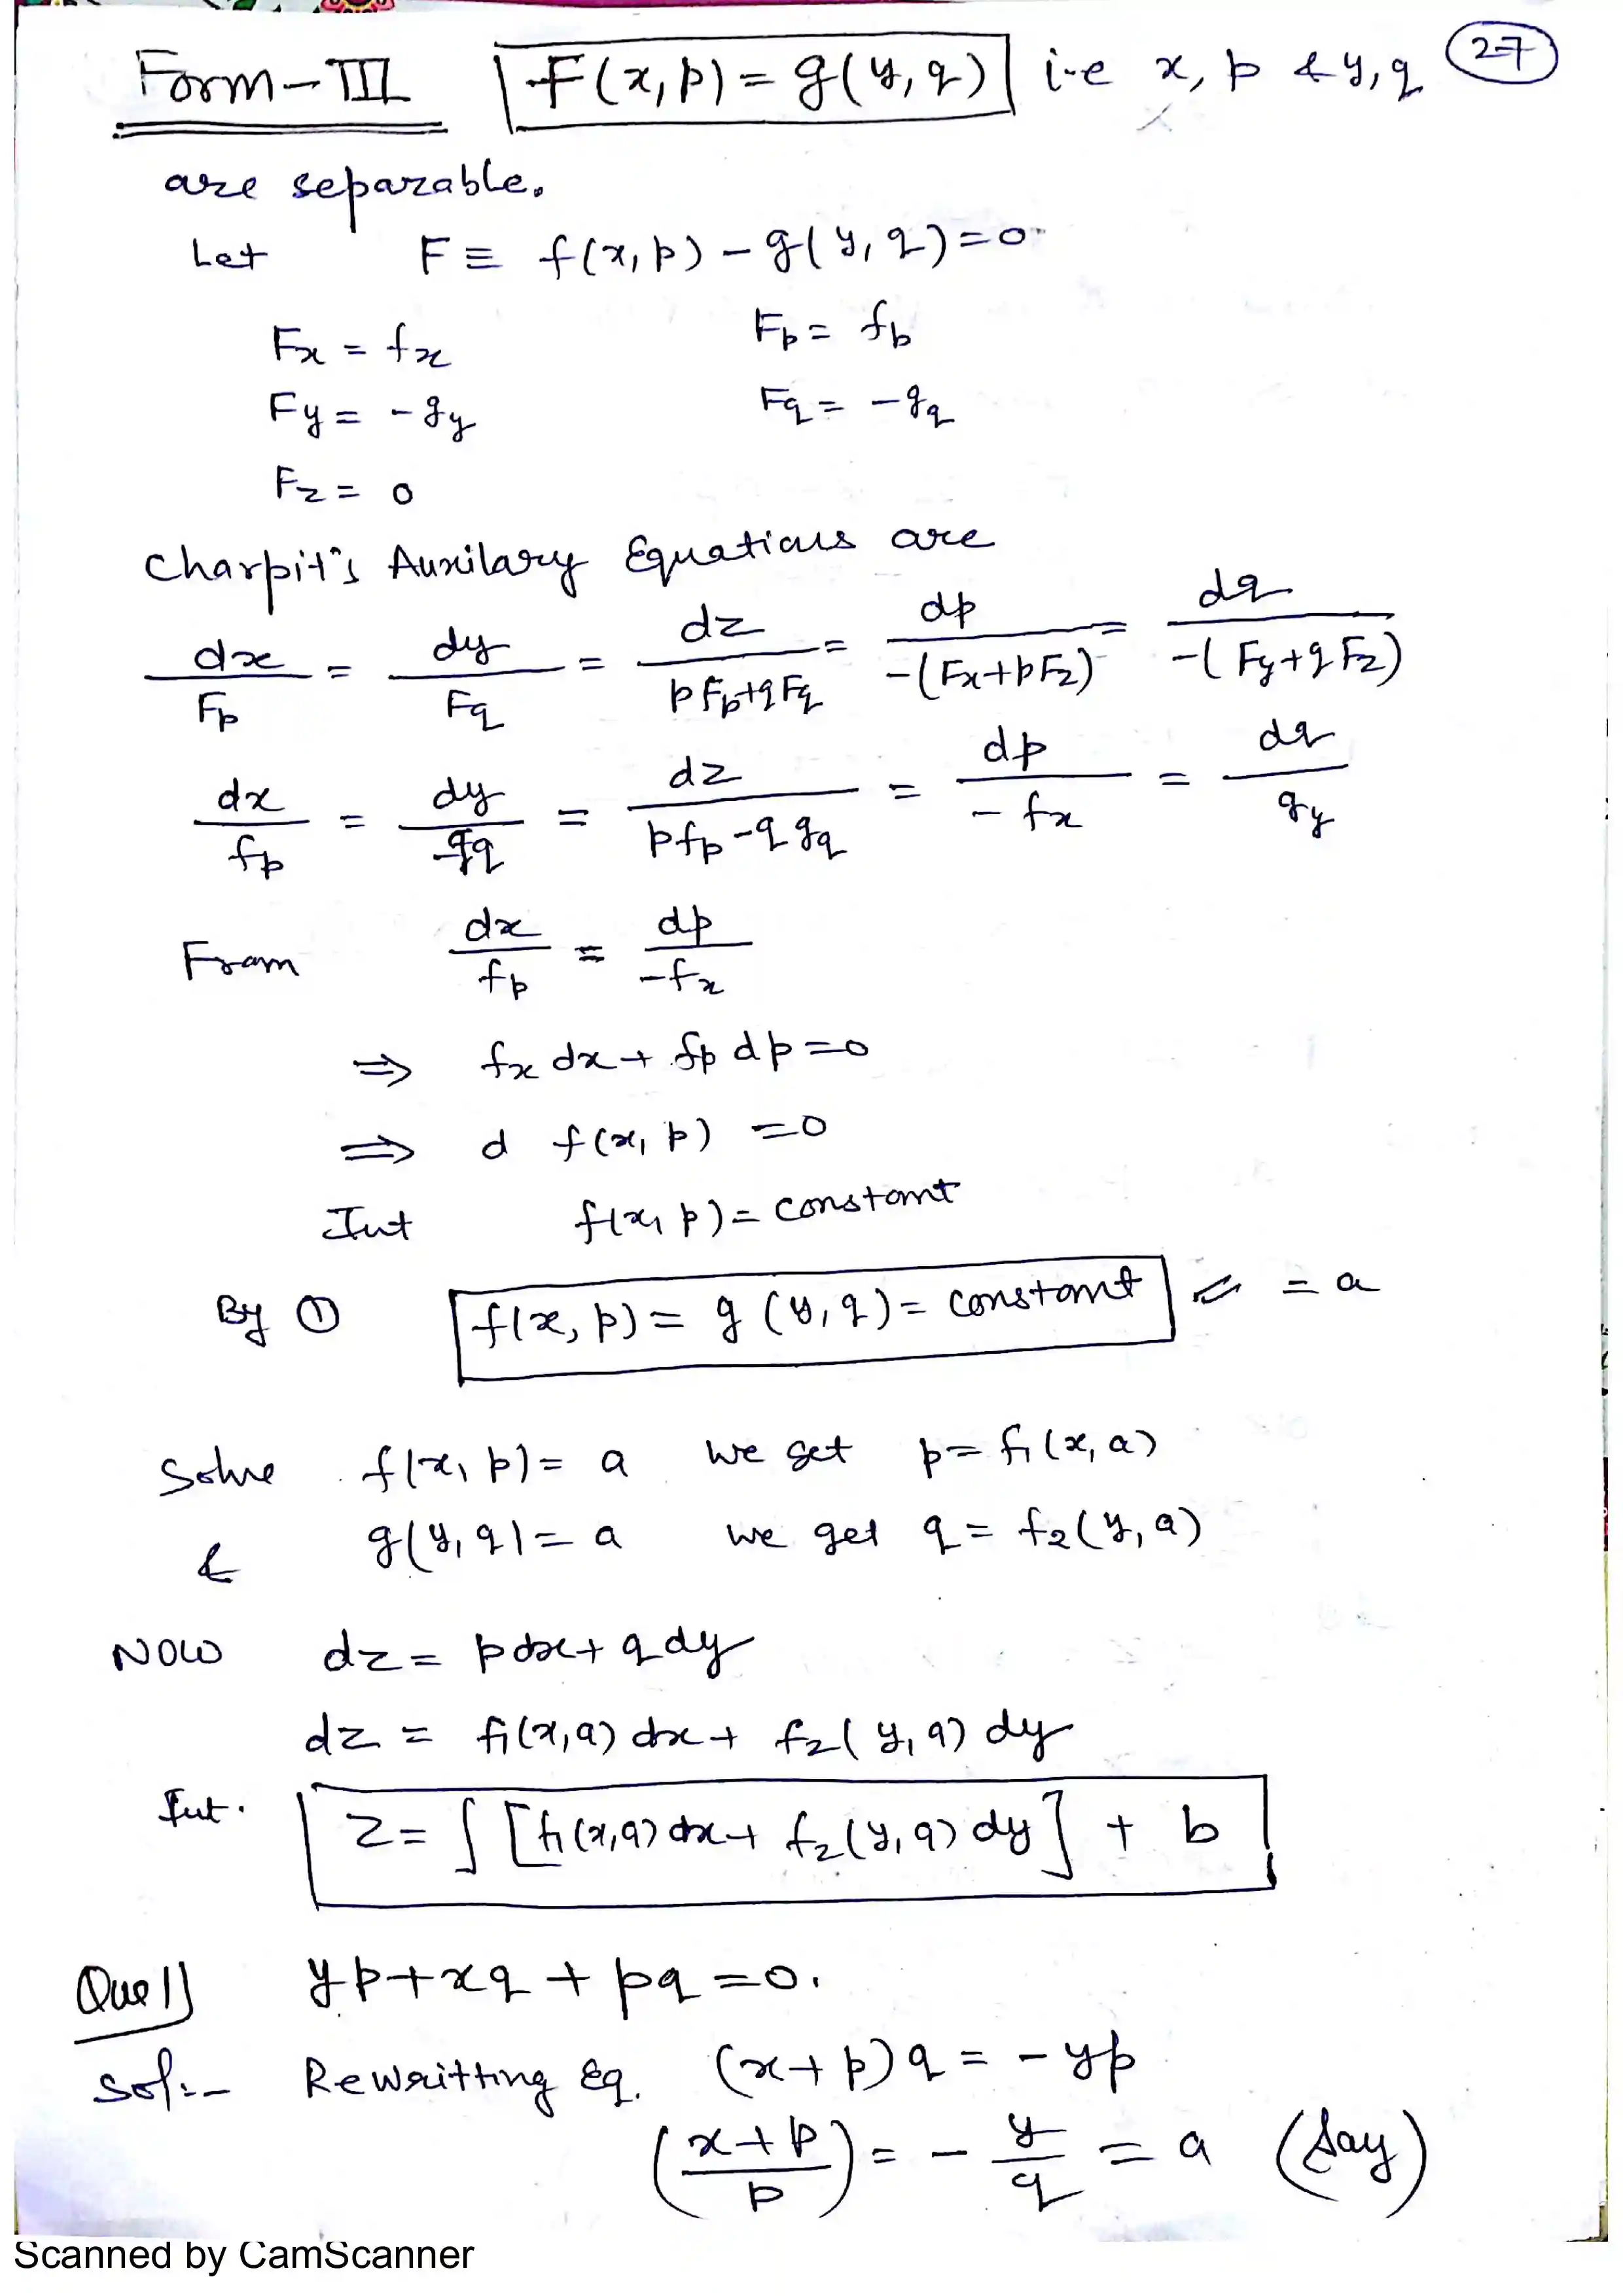 Form-III F(x,p) = g(y,q) i-e x, p & y,q 27
are separable.
Let F ≡ f(x,p) - g(y,q) = 0
Fx = fx Fp = fp
Fy = -gy Fq = -gq
Fz = 0
Charpit's Auxilary Equations are
dx/Fp = dy/Fq = dz/(pFp+qFq) = dp/-(Fx+pFz) = dq/-(Fy+qFz)
dx/fp = dy/-gq = dz/(pfp-qgq) = dp/-fx = dq/gy
From dx/fp = dp/-fx
⇒ fx dx + fp dp = 0
⇒ d f(x,p) = 0
Int f(x,p) = constant
By ① f(x,p) = g(y,q) = constant = a
Solve f(x,p) = a we get p = f1(x,a)
& g(y,q) = a we get q = f2(y,a)
NOW dz = pdx + qdy
dz = f1(x,a) dx + f2(y,a) dy
Int. z = ∫ [f1(x,a) dx + f2(y,a) dy] + b
Que 1) yp + xq + pq = 0.
Sol:- Rewritting Eq. (x+p)q = -yp
((x+p)/p) = -y/q = a (Say)
Scanned by CamScanner